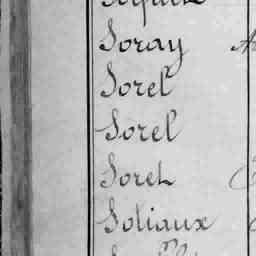 Soray
Sorel
Sorel
Sorel
Soliaux